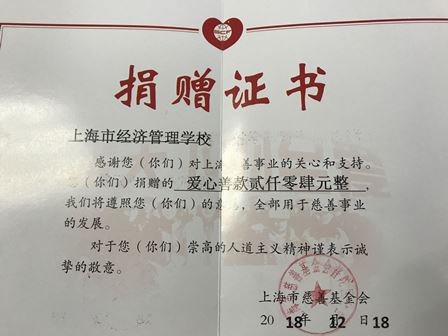 捐赠证书
上海市经济管理学校
感谢您（你们）对上海 善事业的关心和支持。
（你们）捐赠的 爱心善款贰仟零肆元整，
我们将遵照您（你们）的意 ，全部用于慈善事业
的发展。
对于您（你们）崇高的人道主义精神谨表示诚
挚的敬意。
上海市慈善基金会
2018年12月18